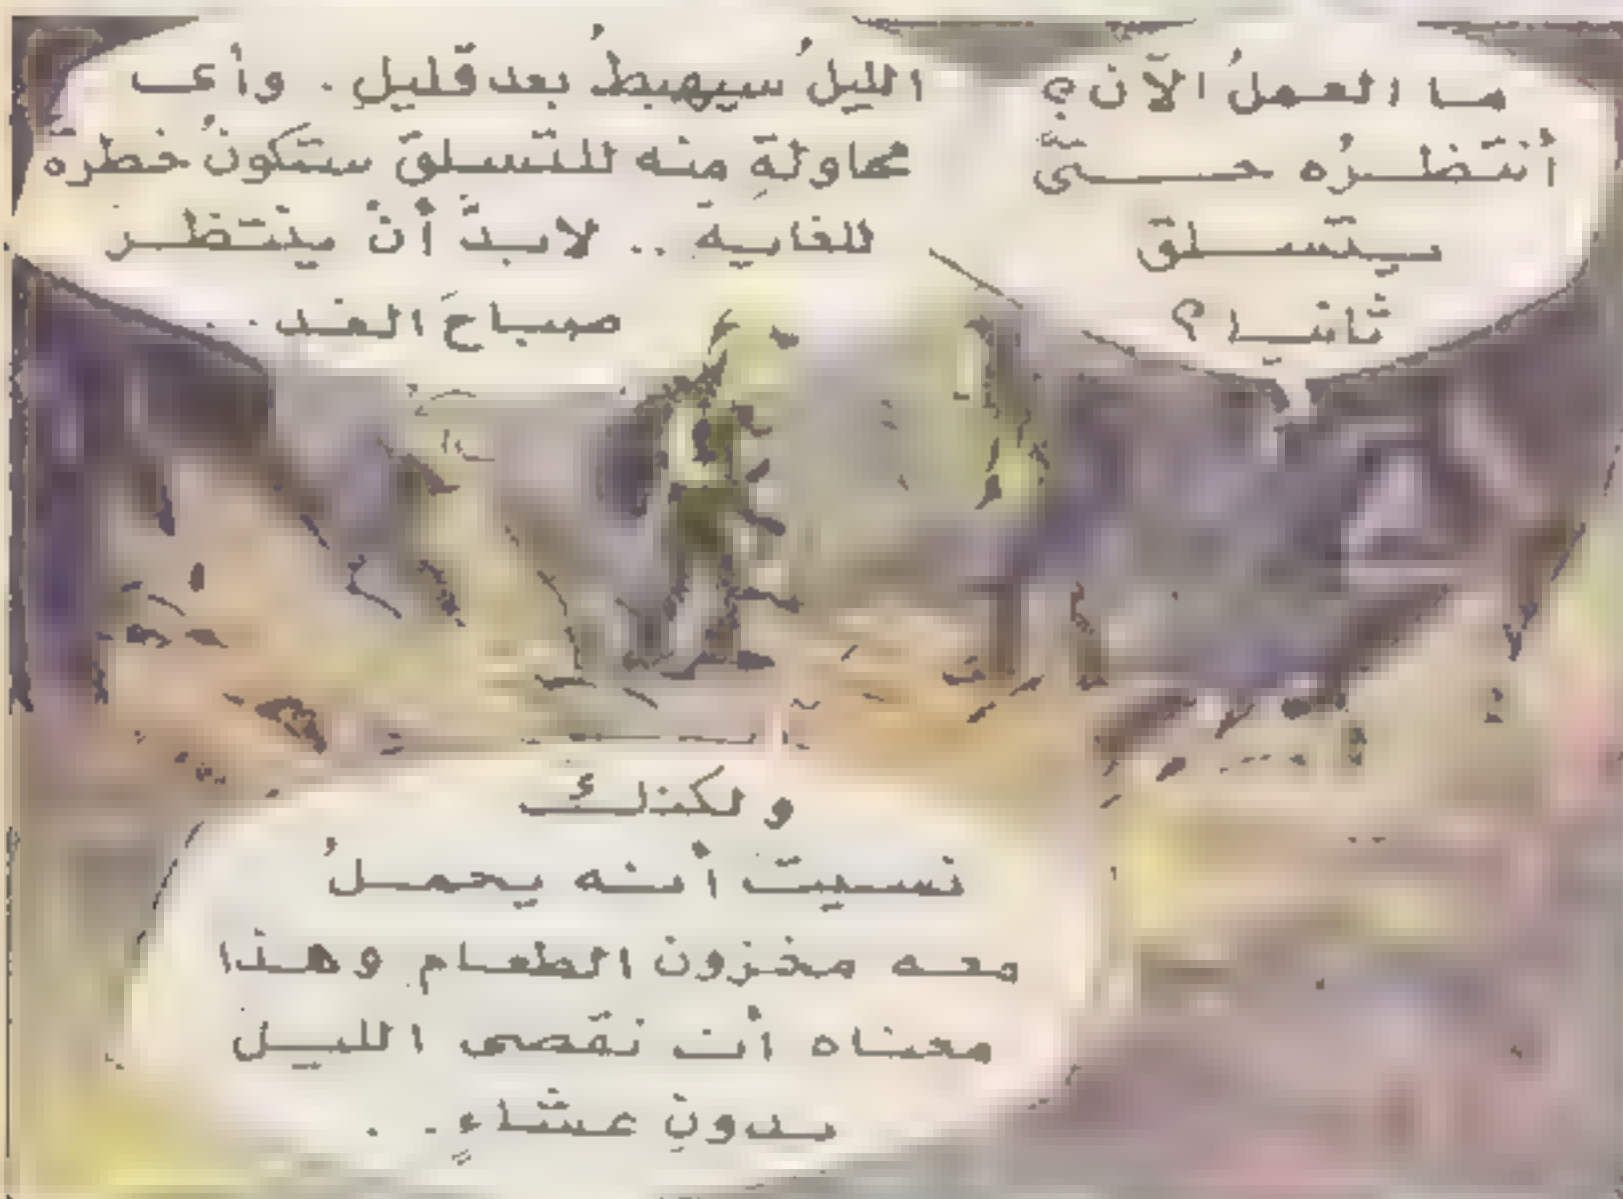 ما العملُ الآن؟
أنتظرُه حتىّ
يتسلق
ثانيا؟
الليلُ سيهبطُ بعد قليلِ . وأى
محاولةِ منه للتسلق ستكونُ خطرة
للغاية .. لابدَّ أنْ ينتظر
صباحَ الغد ..
ولكنك
نسيت أنه يحملُ
معه مخزون الطعام وهذا
معناه أن نقضى الليل
بدونِ عشاءٍ . .